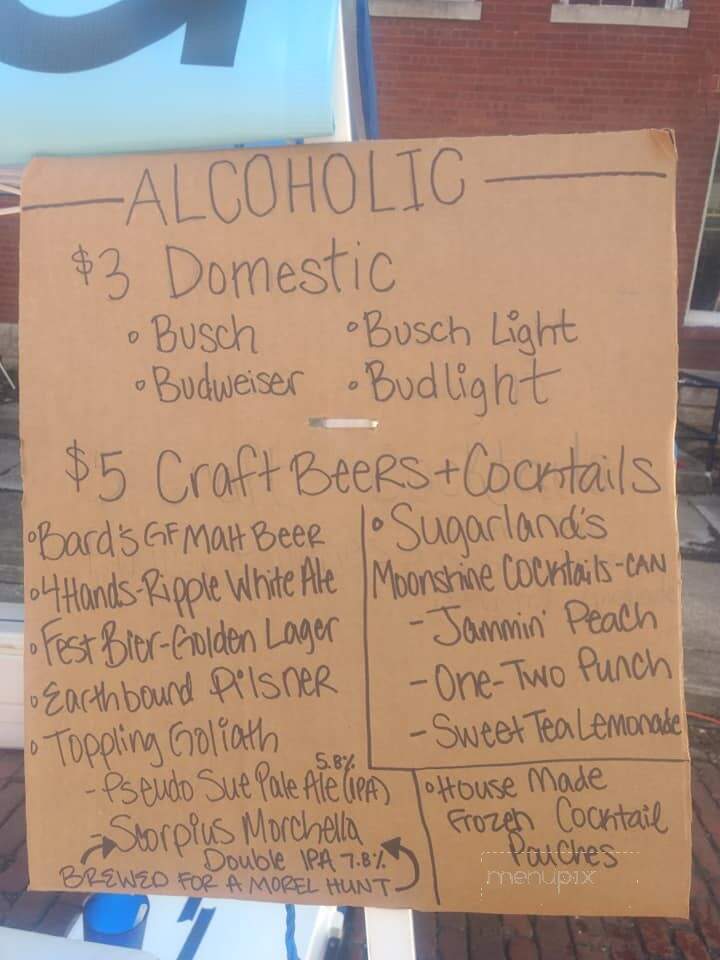 ALCOHOLIC
$3 Domestic
• Busch • Busch Light
• Budweiser • Budlight
$5 Craft Beers + Cocktails
• Bard's GF Malt Beer
• 4 Hands - Ripple White Ale
• Fest Bier - Golden Lager
• Earthbound Pilsner
• Toppling Goliath
- Pseudo Sue Pale Ale (IPA) 5.8%
- Scorpius Morchella
Double IPA 7.8%
BREWED FOR A MOREL HUNT
• Sugarland's
Moonshine Cocktails - CAN
- Jammin' Peach
- One-Two Punch
- Sweet Tea Lemonade
• House Made
Frozen Cocktail
Pouches
menupix